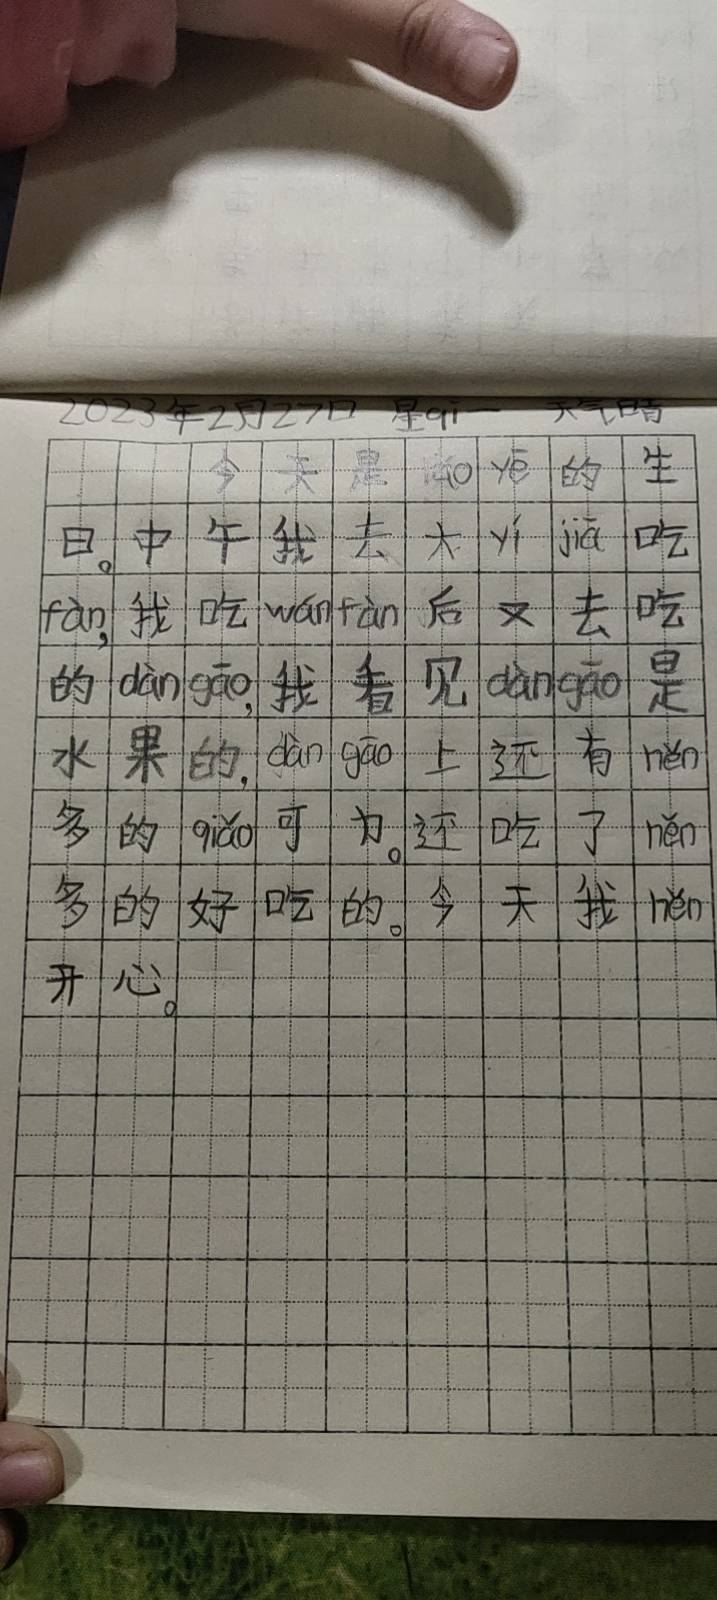 2023年2月27日 星qī一 天气晴
今天是lǎo yē的生
日。中午我去大yí jiā吃
fàn,我吃wán fàn后又去吃
的dàn gāo,我看见dàn gāo是
水果的,dàn gāo上还有hěn
多的qiǎo可力。还吃了hěn
多的好吃的。今天我hěn
开心。